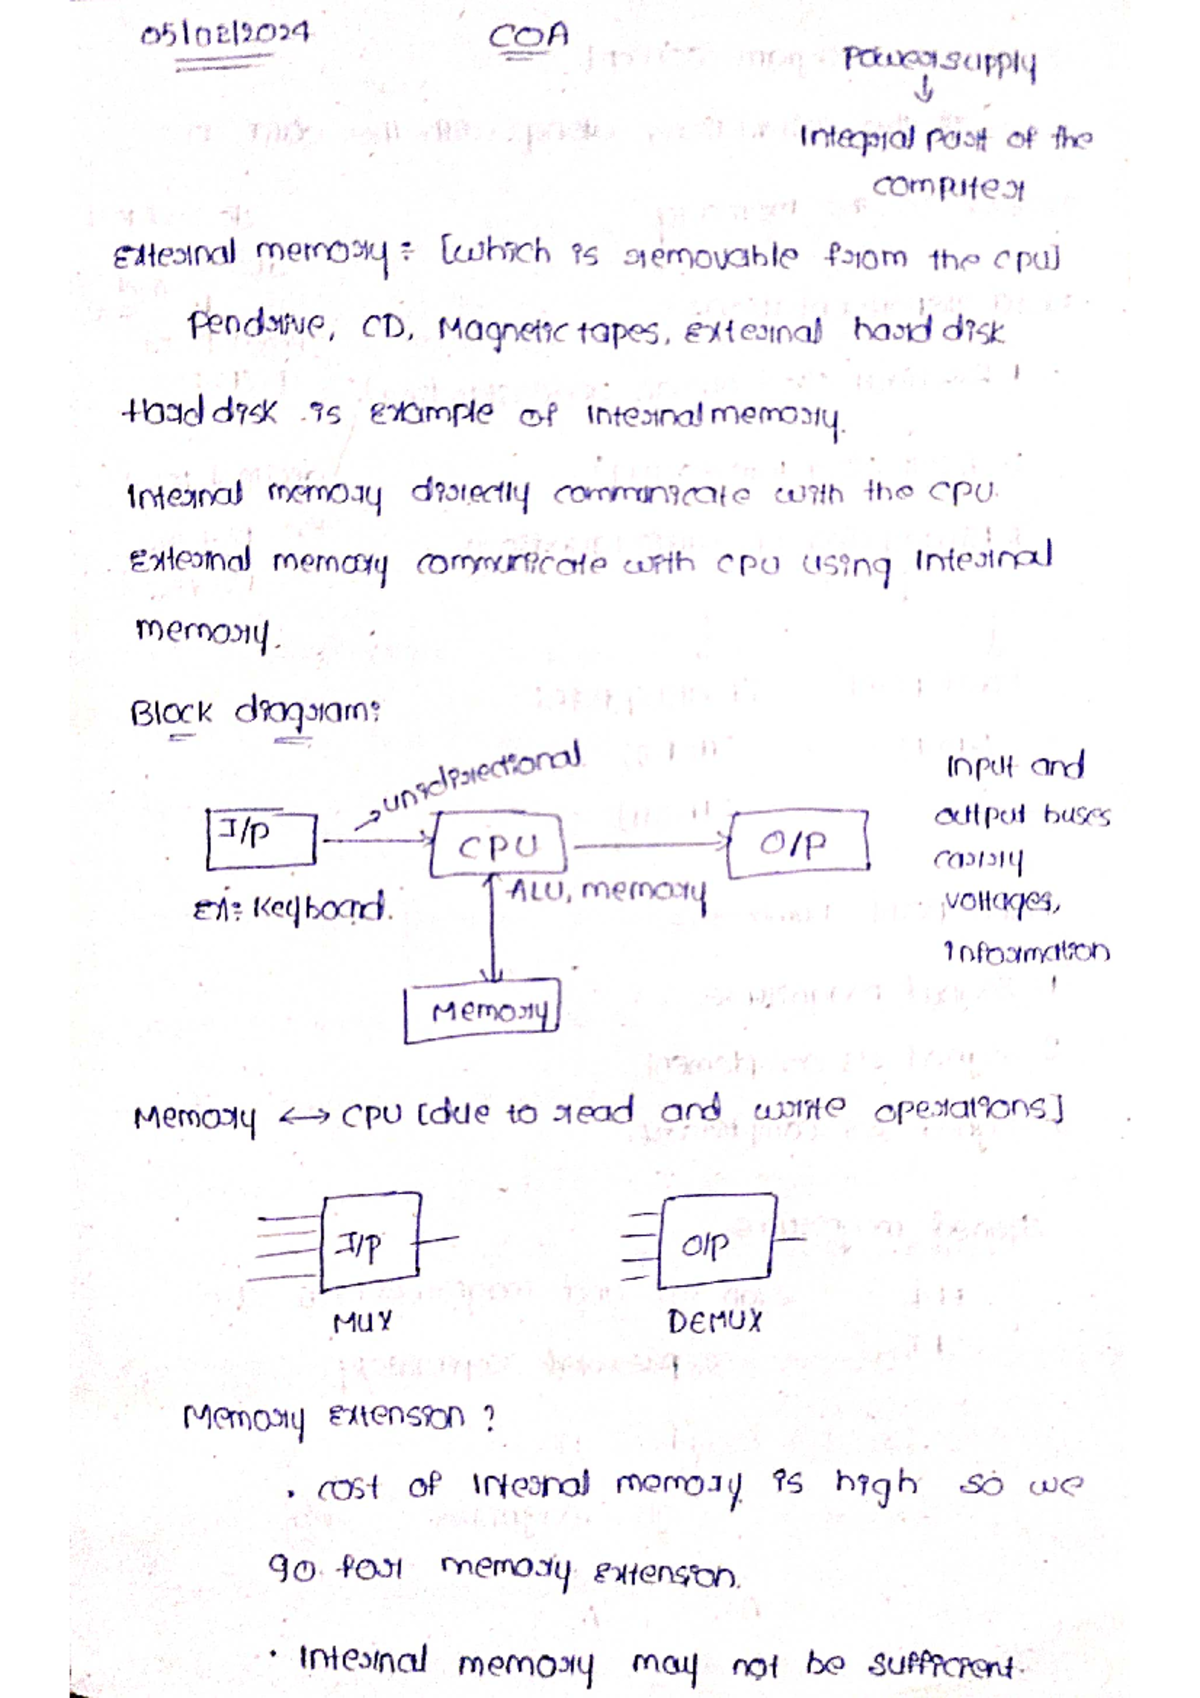 05/02/2024
COA
Power supply
↓
Integral part of the
computer
External memory÷ [which is removable from the cpu]
Pendrive, CD, Magnetic tapes, external hard disk
Hard disk is example of internal memory.
Internal memory directly communicate with the CPU.
External memory communicate with CPU using Internal
memory.
Block diagram:
unidirectional
I/P
CPU
O/P
Ex: Keyboard.
ALU, memory
Memory
Input and
output buses
carry
voltages,
Information
Memory ↔ CPU [due to read and write operations]
I/P
O/P
MUX
DEMUX
Memory extension?
• cost of internal memory is high so we
go for memory extension.
• Internal memory may not be sufficient.